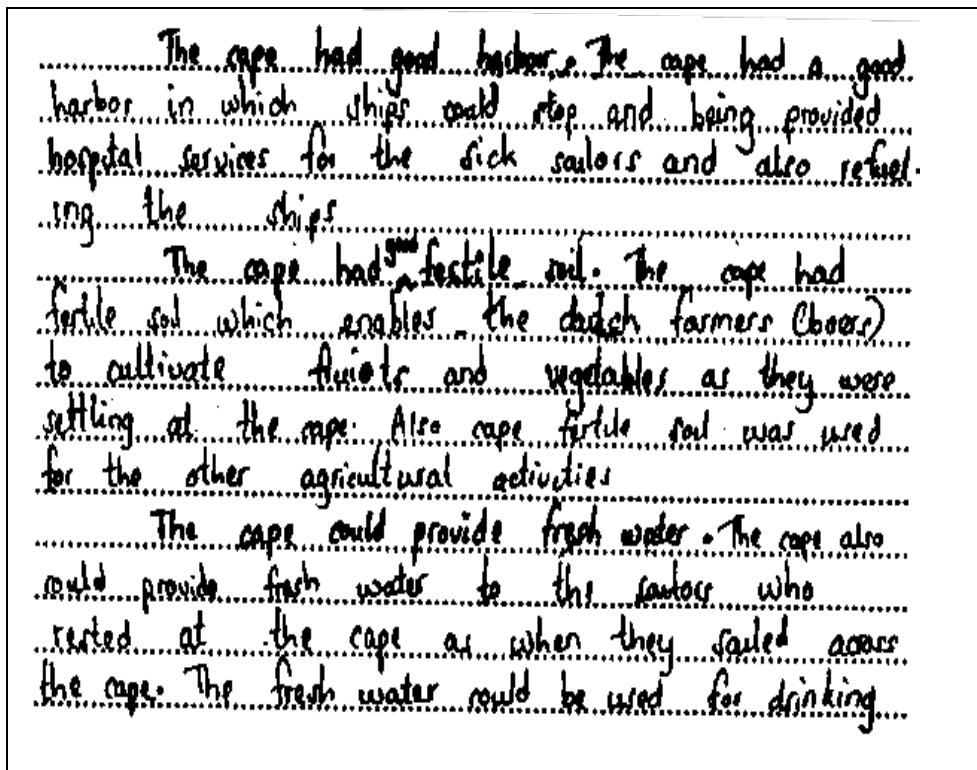 The cape had good harbor. The cape had a good
harbor in which ships could stop and being provided
hospital services for the sick sailors and also refuel-
ing the ships
The cape had good fertile soil. The cape had
fertile soil which enables the dutch farmers (boers)
to cultivate fruiots and vegetables as they were
settling at the cape. Also cape fertile soil was used
for the other agricultural activities
The cape could provide fresh water. The cape also
could provide fresh water to the sailors who
rested at the cape as when they sailed across
the cape. The fresh water could be used for drinking